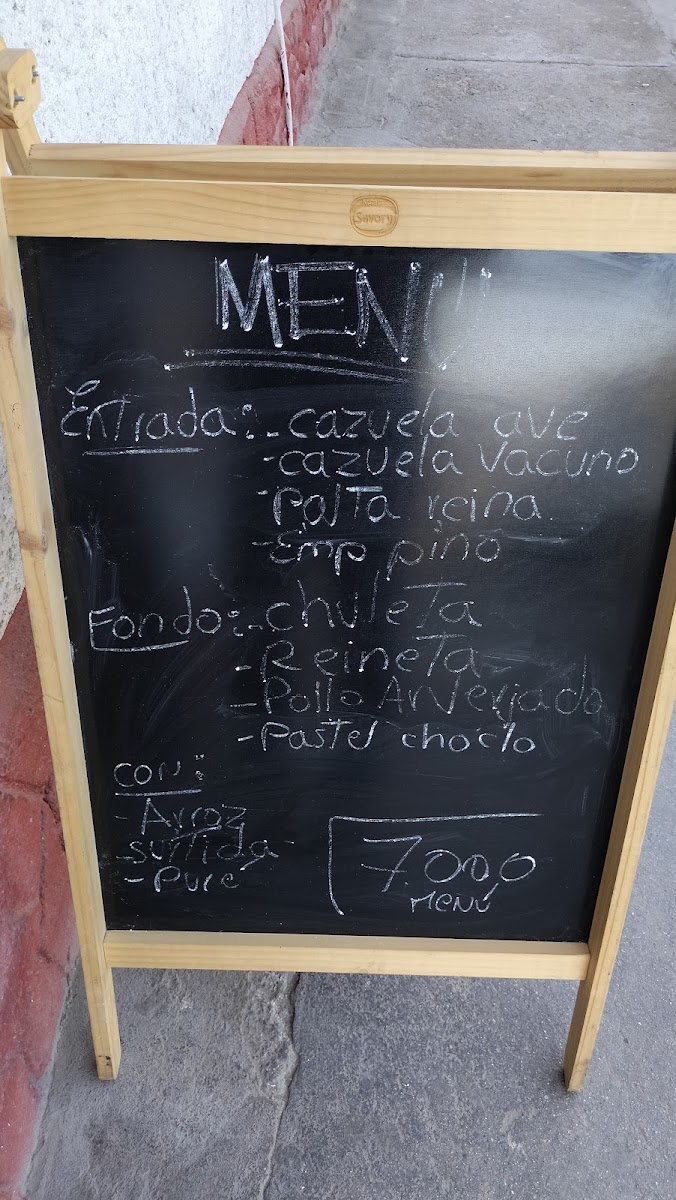 Savory
MENU
Entrada:- cazuela ave
-cazuela vacuno
-palta reina
-Emp pino
Fondo:- chuleta
-Reineta
-Pollo Arverjado
-Pastel choclo
con:
-Arroz
-surtida
-Puré
7.000
MENÚ